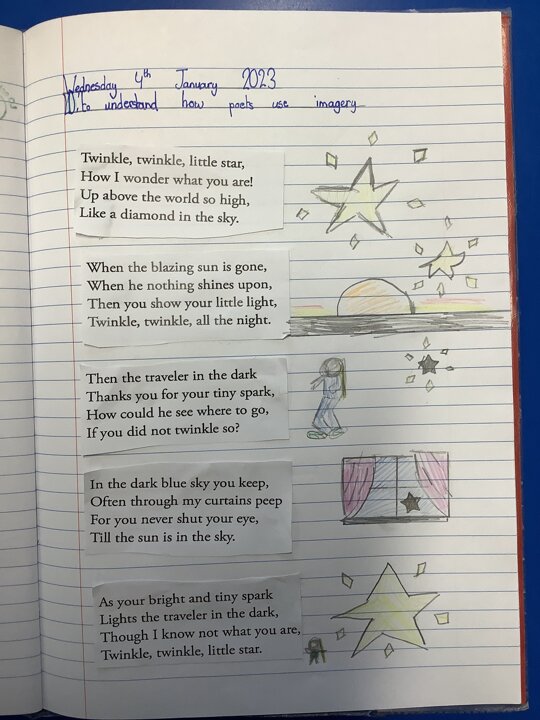 Wednesday 4th January 2023
to understand how poets use imagery
Twinkle, twinkle, little star,
How I wonder what you are!
Up above the world so high,
Like a diamond in the sky.
When the blazing sun is gone,
When he nothing shines upon,
Then you show your little light,
Twinkle, twinkle, all the night.
Then the traveler in the dark
Thanks you for your tiny spark,
How could he see where to go,
If you did not twinkle so?
In the dark blue sky you keep,
Often through my curtains peep
For you never shut your eye,
Till the sun is in the sky.
As your bright and tiny spark
Lights the traveler in the dark,
Though I know not what you are,
Twinkle, twinkle, little star.